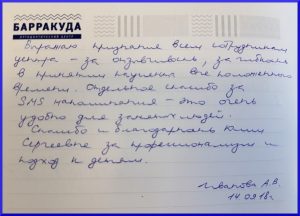 БАРРАКУДА
ОРТОДОНТИЧЕСКИЙ ЦЕНТР
Выражаю признание всем сотрудникам
центра - за отзывчивость, за гибкость
в принятии пациента вне положенного
времени. Отдельное спасибо за
SMS напоминания - это очень
удобно для занятых людей!
Спасибо и благодарность Юлии
Сергеевне за профессионализм и
подход к детям.
Иванова А.В.
14.09.18г.